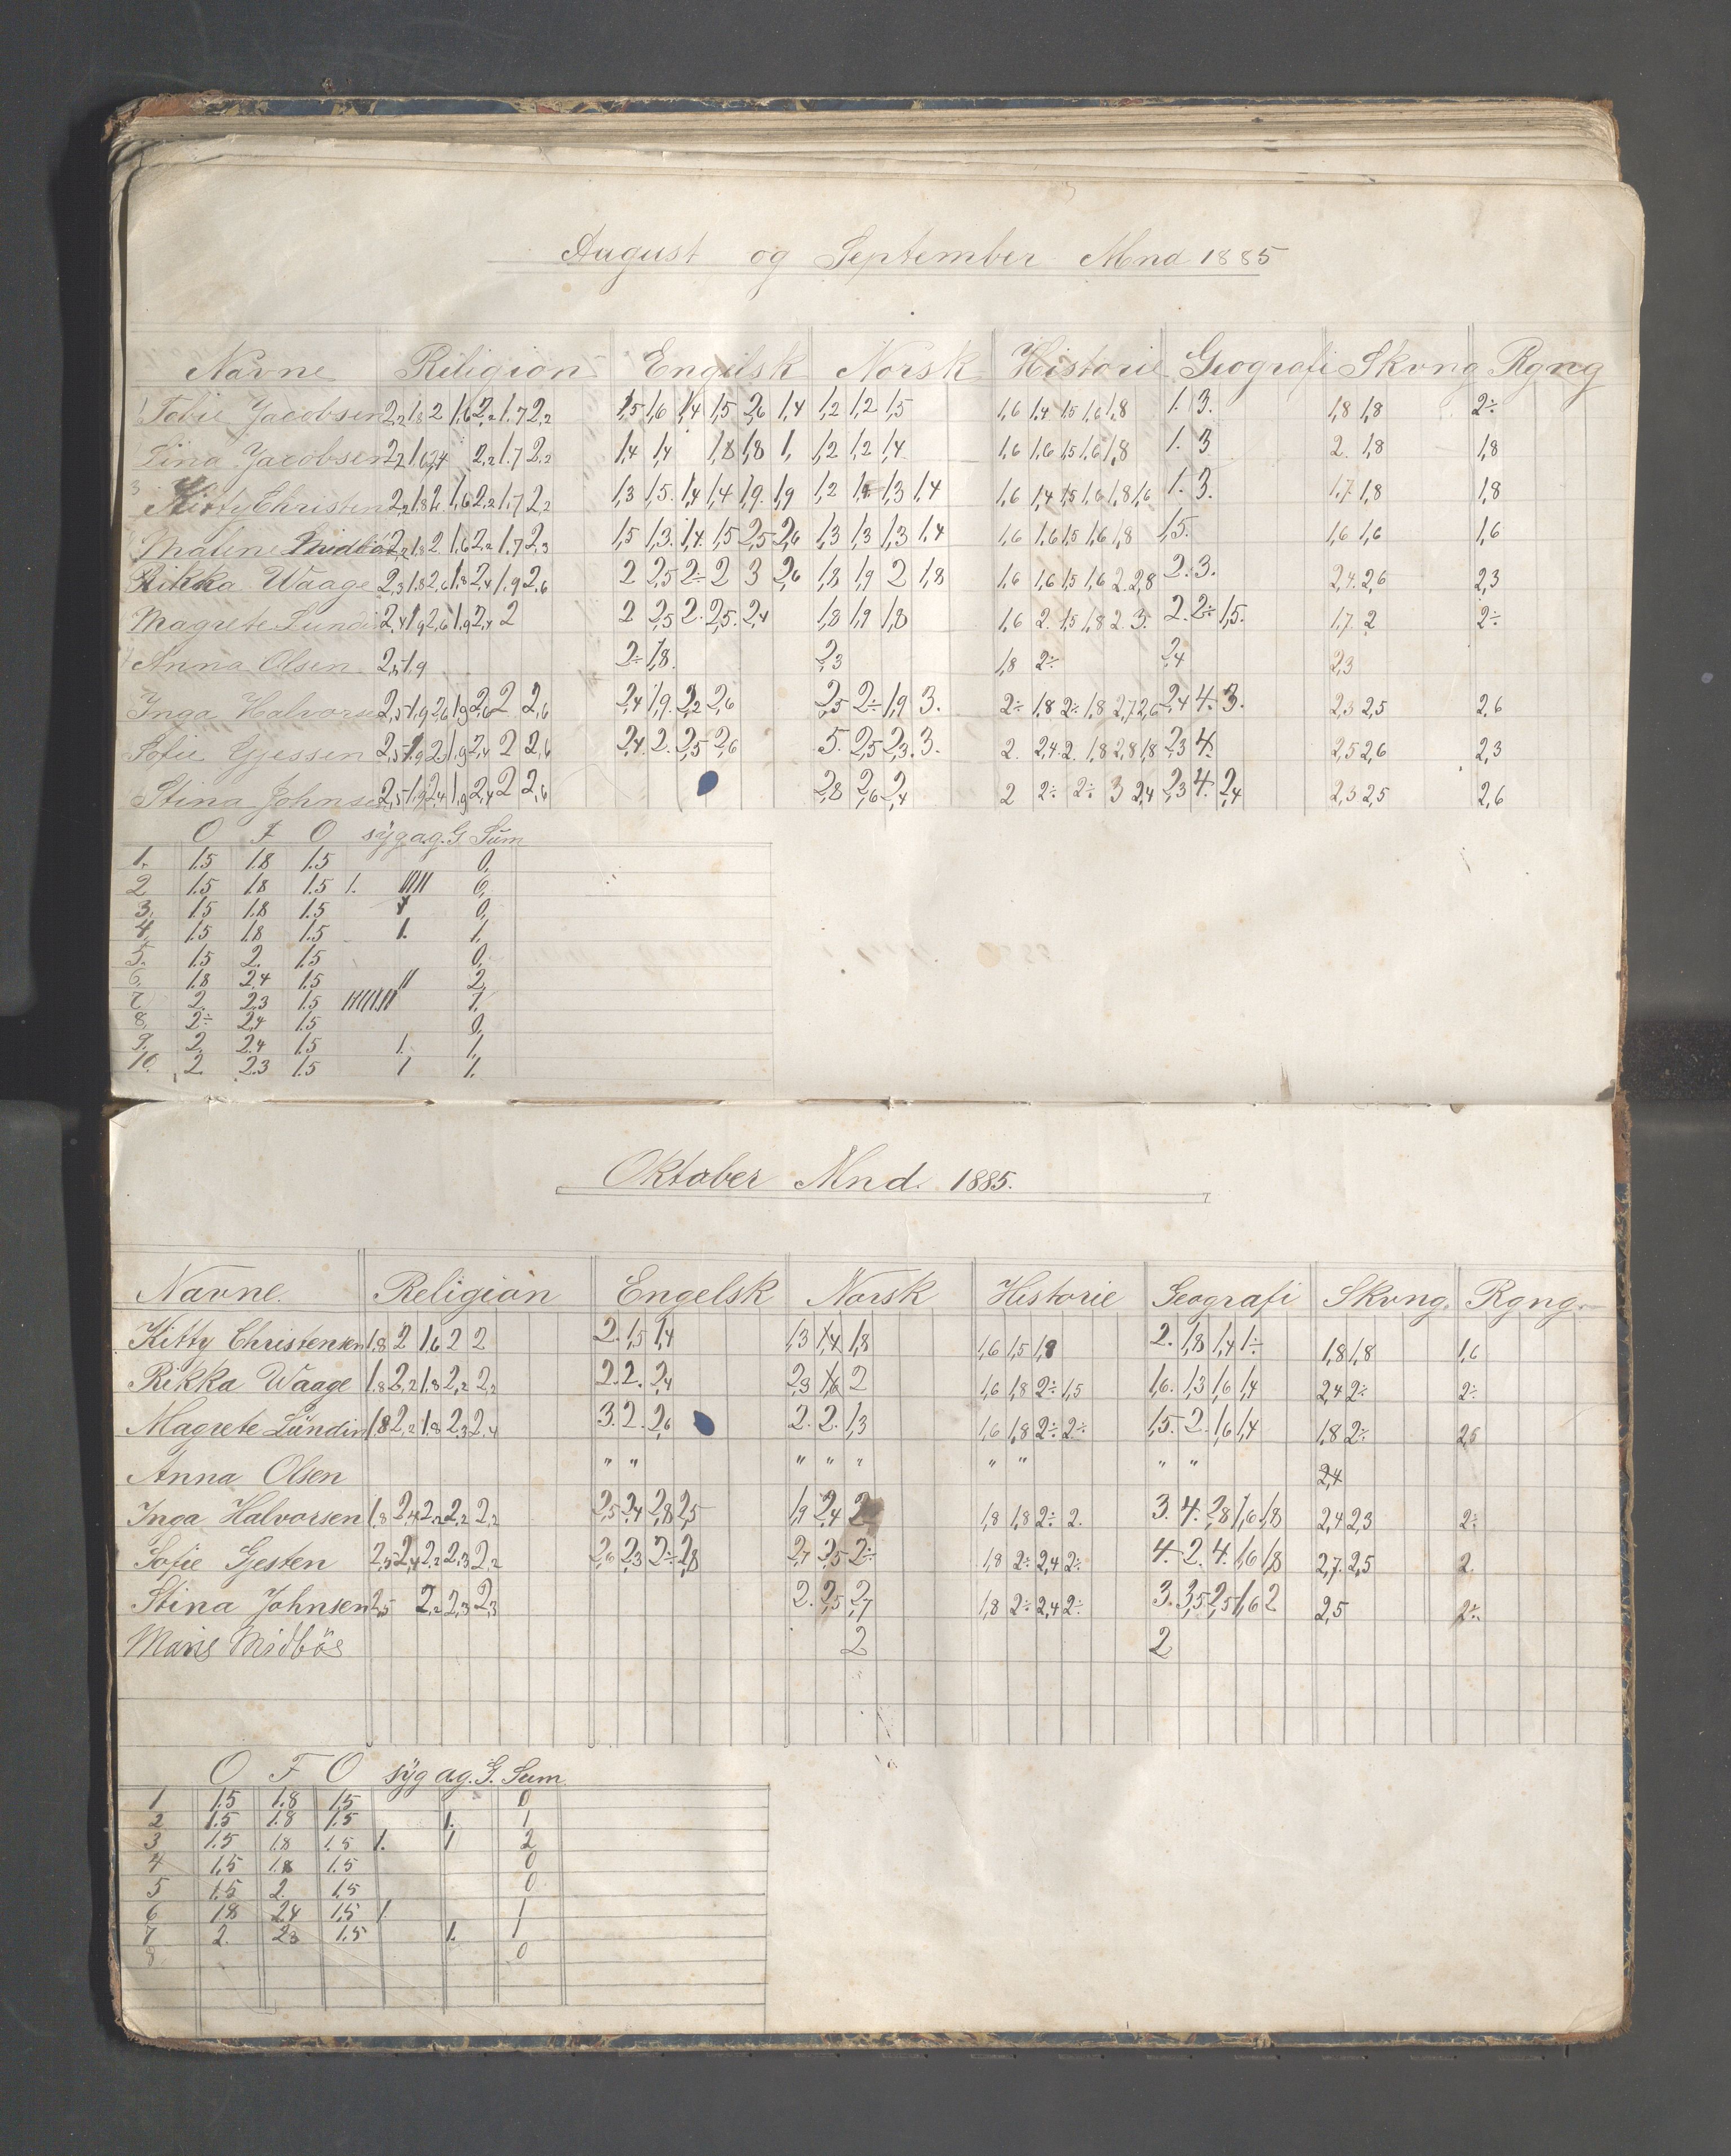 August og September Mnd 1885
Navne Religion Engelsk Norsk Historie Geografi Skvng Rgng
Jacobsen 2,2 1,8 2 1,6 2,2 1,7 2,2 1,5 1,6 1,4 1,5 2,6 1,4 1,2 1,2 1,5 1,6 1,4 1,5 1,6 1,8 1. 3. 1,8 1,8 2÷
Jacobsen 2,2 2,2 1,7 2,2 1,4 1,4 1,8 1,8 1, 1,2 1,2 1,4 1,6 1,6 1,5 1,6 1,8 1. 3 2. 1,8 1,8
3 Kitty Christen 2,2 1,8 2. 1,6 2,2 1,7 2,2 1,3 1,5. 1,4 1,4 1,9. 1,9 1,2 1,3 1,4 1,6 1,4 1,5 1,6 1,8 1,6 1. 3. 1,7. 1,8 1,8
Malene Midbö 2,2 1,8 2 1,6 2,2 1,7 2,3 1,5 1,3. 1,4. 1,5 2,5 2,6 1,3 1,3 1,3 1,4 1,6 1,6 1,5 1,6 1,8 1,5. 1,6 1,6 1,6
Rikka Waage 2,3 1,8 2,6 1,8 2,4 1,9 2,6 2 2,5 2÷ 2 3 2,6 1,8 1,9 2 1,8 1,6 1,6 1,5 1,6 2 2,8 2. 3. 2,4. 2,6 2,3
Magrete Lundin 2,4 1,9 2,6 1,9 2,4 2 2 2,5 2. 2,5. 2,4 1,8 1,9 1,8 1,6 2. 1,5 1,8 2. 3. 2. 2÷ 1,5. 1,7. 2 2÷
Anna Olsen 2,5 1,9 2÷ 1,8. 2,3 1,8 2÷ 2,4 2,3
Inga Halvorsen 2,5 1,9 2,6 1,9 2,6 2 2,6 2,4 1,9. 2,2 2,6 2,5 2÷ 1,9 3. 2÷ 1,8 2÷ 1,8 2,7 2,6 2,4 4. 3. 2,3 2,5 2,6
Sofie Gjessen 2,5 1,9 2, 1,9 2,4 2 2,6 2,4. 2. 2,5 2,6 5. 2,5 2,3. 3. 2. 2,4. 2. 1,8 2,8 1,8 2,3 4. 2,5 2,6 2,3
Stina Johnsen 2,5 1,9 2,4 1,9 2,4 2 2,6 2,8 2,6 2,4 2 2÷ 2÷ 3 2,4 2,3 4. 2,4 2,3 2,5 2,6
O F O syg a.g. G Sum
1. 1.5 1.8 1.5 0,
2 1.5 1.8 1.5 1. 6,
3. 1.5 1.8 1.5 0,
4, 1.5 1.8 1.5 1. 1,
5. 1.5 2. 1.5 0,
6. 1.8 2.4 1.5 II 2,
7 2. 2.3 1.5 IIIIIII 7,
8. 2÷ 2,4 1.5 0,
9. 2. 2.4 1.5 1. 1,
10. 2. 2.3 1.5 1 1.
Oktober Mnd. 1885.
Navne. Religion Engelsk Norsk Historie Geografi Skvng. Rgng.
Kitty Christensen 1,8 2 1,6 2 2 2. 1,5 1,4 1,3 1,4 1,8 1,6 1,5 1,9 2. 1,8 1,4 1÷ 1,8 1,8 1,6
Rikka Waage 1,8 2,2 1,8 2,2 2,2 2. 2. 2,4 2,3 1,6 2 1,6 1,8 2÷ 1,5 1,6. 1,3 1,6 1,4 2,4 2÷ 2÷
Magrete Lündin 1,8 2,2 1,8 2,3 2,4 3. 2. 2,6 2. 2. 1,3 1,6 1,8 2÷ 2÷ 1,5. 2. 1,6 1,4 1,8 2÷ 2,5
Anna Olsen " " " " " " " " " 2,4
Inga Halvorsen 1,8 2,4 2,2 2,2 2,2 2,5 2,4 2,8 2,5 1,9 2,4 2 1,8 1,8 2÷ 2. 3. 4. 2,8 1,6 1,8 2,4 2,3 2÷
Sofie Gjesten 2,5 2,4 2,2 2,3 2,2 2,6 2,3 2÷ 2,8 2,7 2,5 2÷ 1,8 2÷ 2,4 2÷ 4. 2. 4. 1,6 1,8 2,7. 2,5 2.
Stina Johnsen 2,5 2,2 2,3 2,3 2. 2,5 2,7 1,8 2÷ 2,4 2÷ 3. 3,5 2,5 1,6 2 2,5 2÷
Maris Midbös 2 2
O F O syg ag. G. Sum
1 1.5 1.8 1.5 0
2 1.5 1.8 1.5 1. 1
3 1.5 1.8 1.5 1. 1 2
4 1,5 1.8 1.5 0
5 1.5 2. 1.5 0
6 1.8 2.4 1.5 1. 1
7 2. 2.3 1.5 1. 1
8. 0